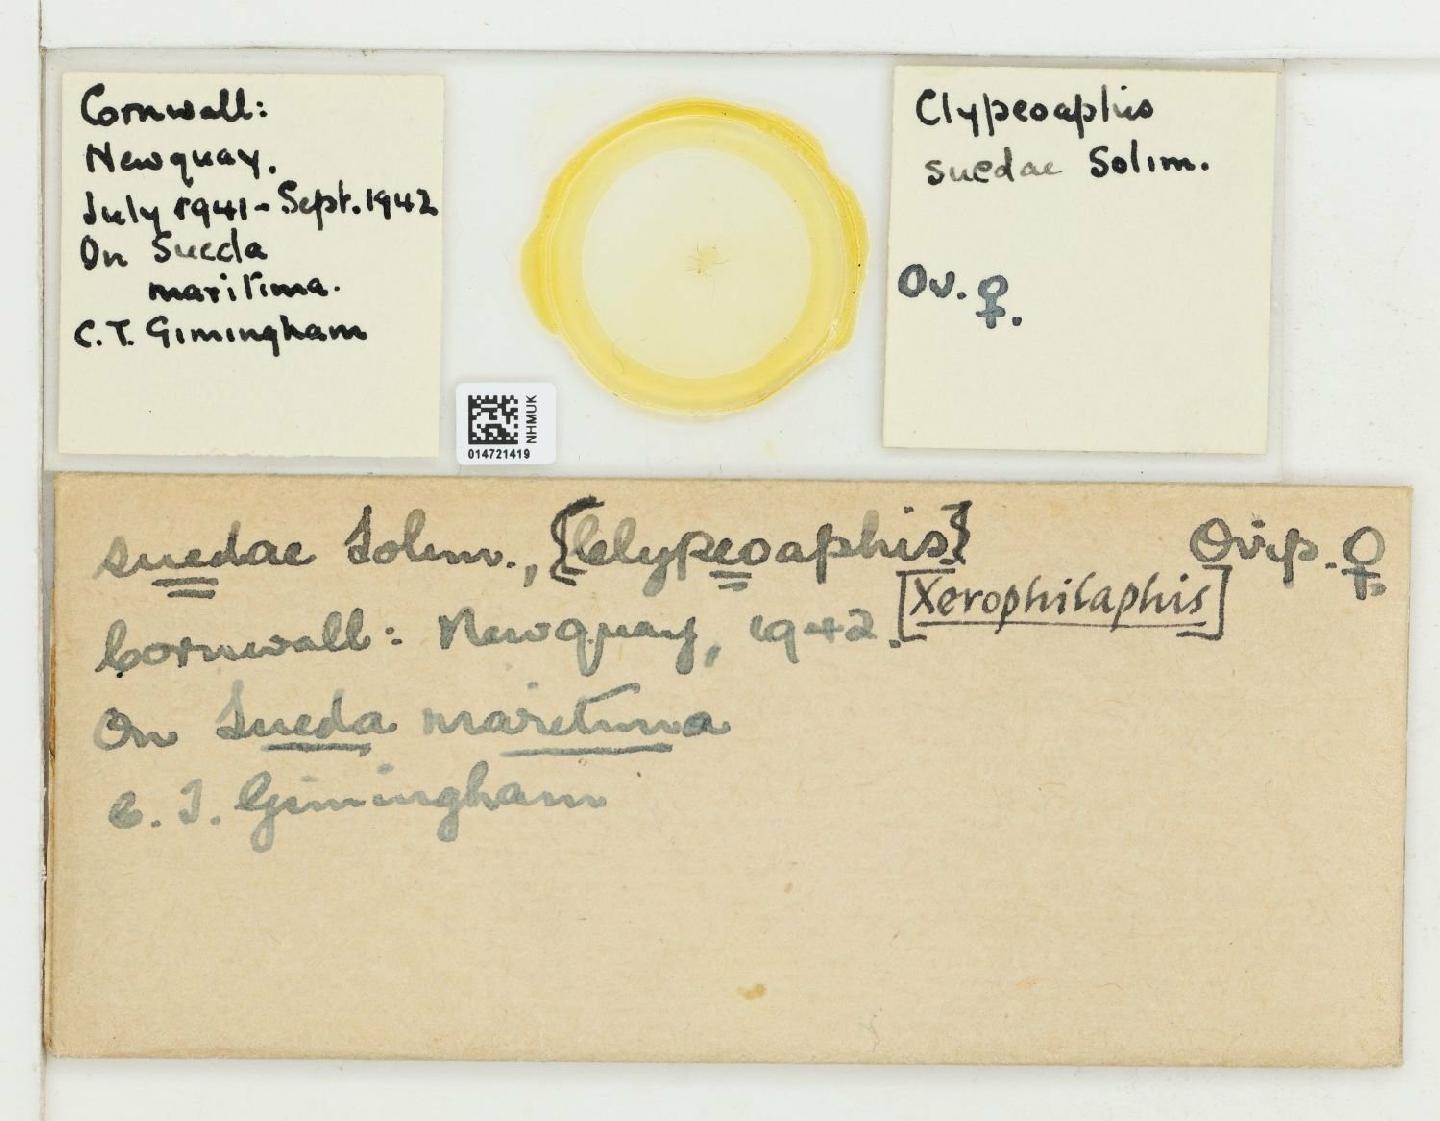 Cornwall:
Newquay.
July 1941 - Sept. 1942
On Sueda
maritima.
C.T. Gimingham
NHMUK
014721419
Clypeoaphis
suedae Solim.
Ov. ♀.
suedae Solim., {Clypeoaphis} Ovip. ♀
[Xerophilaphis]
Cornwall: Newquay, 1942.
On Sueda maritima
C. T. Gimingham